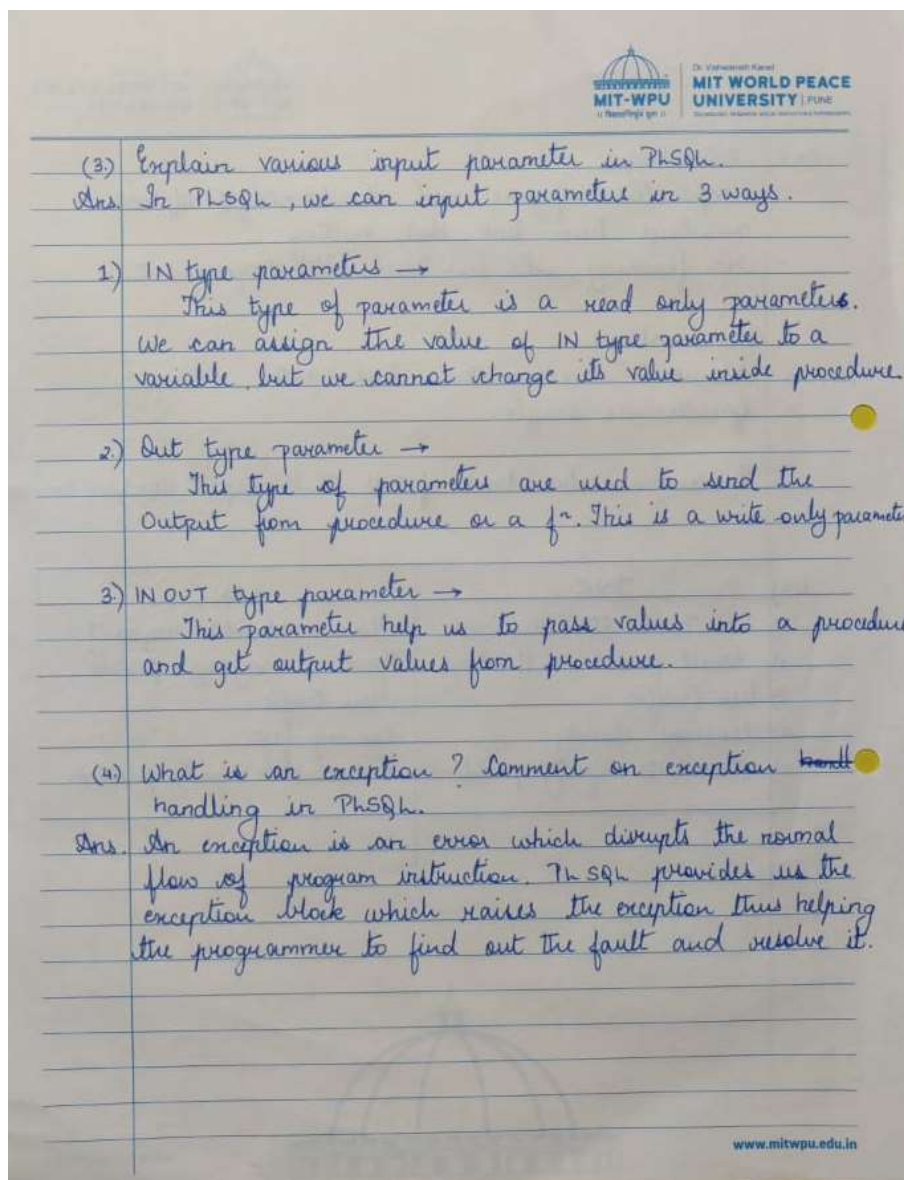 Dr. Vishwanath Karad
MIT WORLD PEACE
UNIVERSITY | PUNE
MIT-WPU
(3.) Explain various input parameter in PLSQL.
Ans. In PLSQL, we can input parameters in 3 ways.
1.) IN type parameters →
This type of parameter is a read only parameters.
We can assign the value of IN type parameter to a
variable but we cannot change its value inside procedure.
2.) Out type parameter →
This type of parameters are used to send the
Output from procedure or a fⁿ. This is a write only paramete
3.) IN OUT type parameter →
This parameter help us to pass values into a procedure
and get output values from procedure.
(4.) What is an exception ? Comment on exception handl
handling in PLSQL.
Ans. An exception is an error which disrupts the normal
flow of program instruction. PL SQL provides us the
exception block which raises the exception thus helping
the programmer to find out the fault and resolve it.
www.mitwpu.edu.in